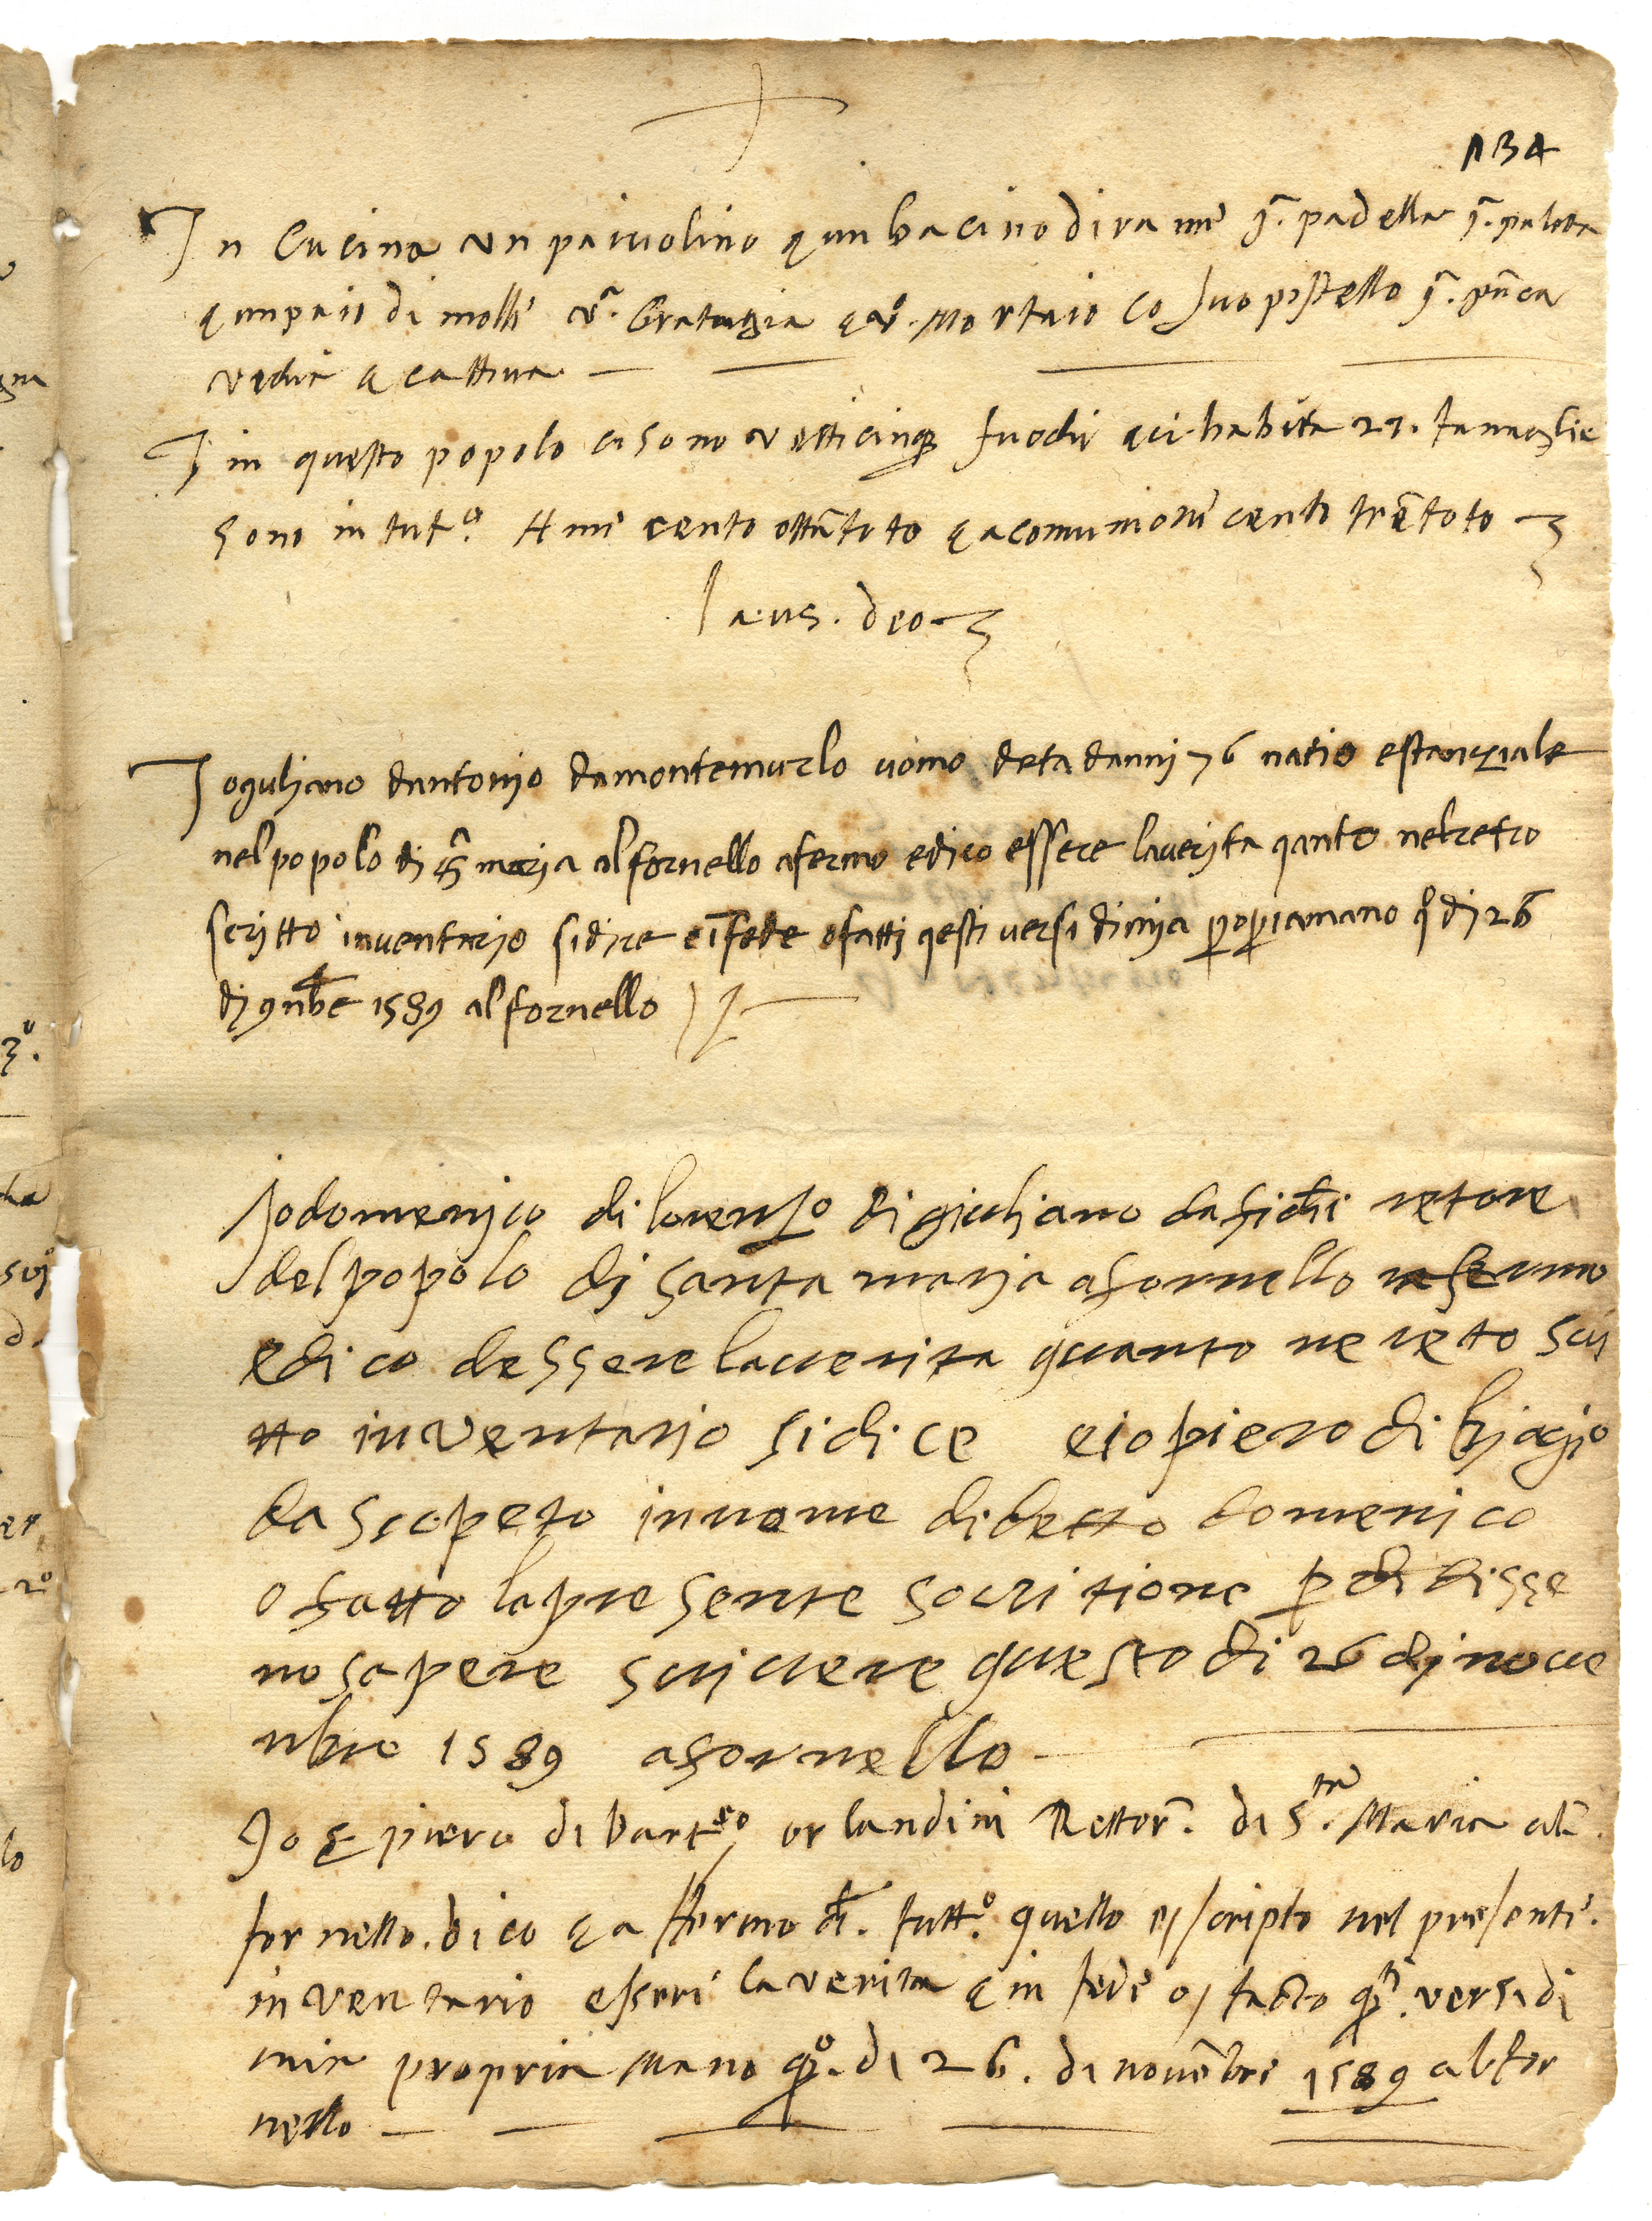 134
In Cucina un paiuolino & un bacino di rame jª. padella jª. paletta
& un paio di molli uª. Gratugia & uº. Mortaio co suo pistello jª. panca
vechia & cattiva
In questo popolo ci sono venticinque fuochi & ci habita 27. famaglie
sono in tutº. Anime cento ottātotto & a comunione cento trētotto
laus. deo
Jo guliano dantonjo da montemurlo uomo deta danni 76 natio e stanziale
nel popolo di Sª marja al fornello afermo e dico essere la verjta qanto nel retro
scrjtto inventarjo si djce e ī fede o fatti qesti versi di mja propria mano qº dj 26
dj 9nbre 1589 al fornello
Jo domenjco di lorenzo di giuliano da fichi retore
del popolo dj santa marja a fornello afermo
e dico dessere la verita quanto ne reto scri
tto inventarjo si dice e io piero di bjagio
da scopeto in nome di detto domenico
o fatto la presente socritione p di disse
no sapere scrivere questo di 26 dj nove
nbre 1589 a fornello
Jo S piero di Bartºeo orlandini Rettorᵉ. di Sᵗᵃ. Maria al
fornello. dico & affermo ch. tuttº. quello e scripto nel presente.
inventario essere la verita & in fede o facto qᵗⁱ. versi di
mia propria mano qº. di 26. di novēbre 1589 al for
nello